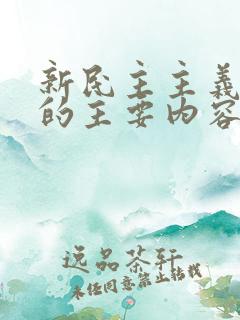 新民主主義
的主要内容
逸品茶轩
未经同意禁止转载